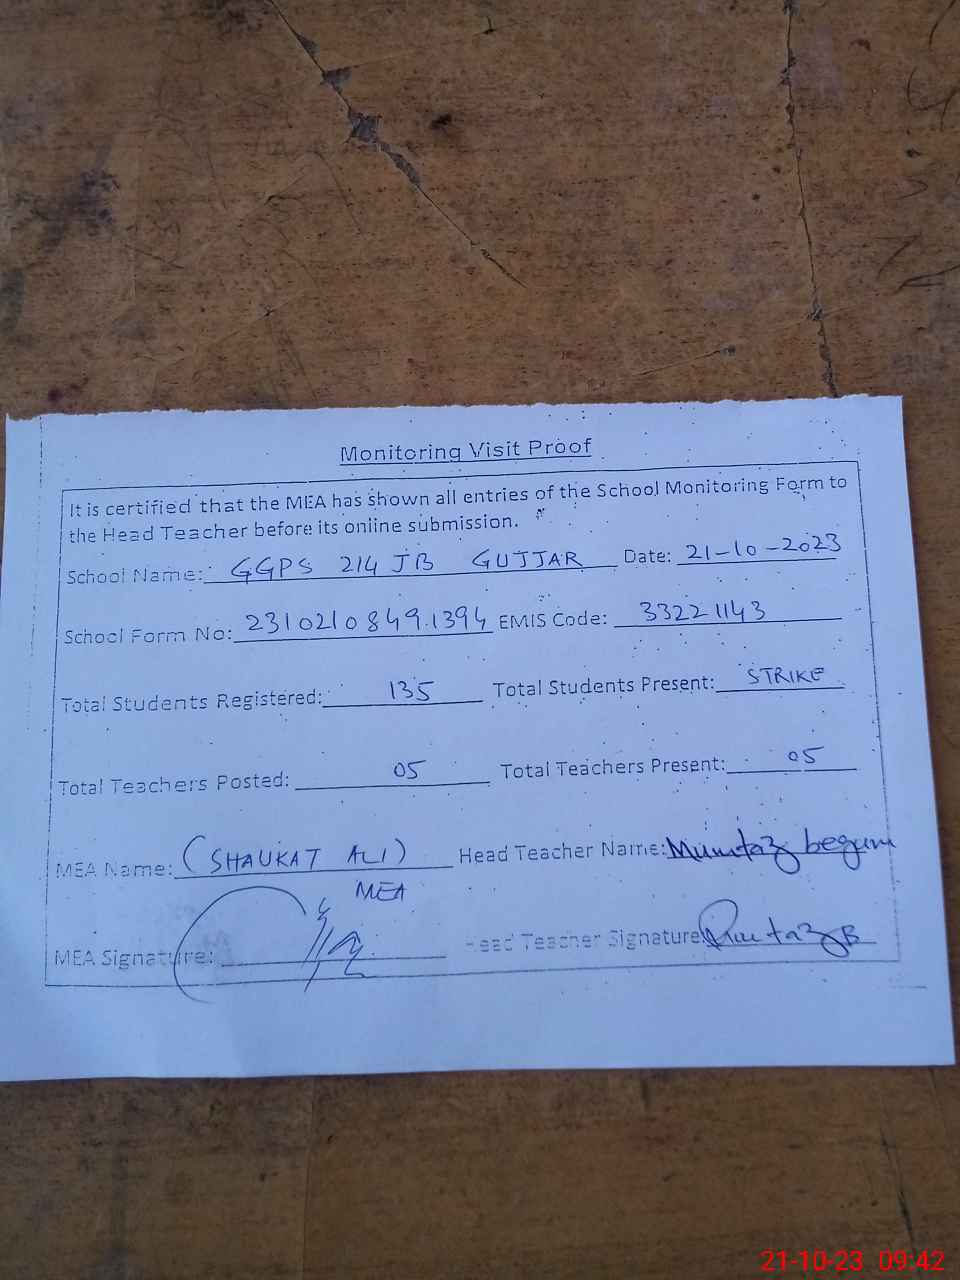 Monitoring Visit Proof
It is certified that the MEA has shown all entries of the School Monitoring Form to
the Head Teacher before its online submission.
School Name: GGPS 214 JB GUJJAR Date: 21-10-2023
School Form No: 2310210849.1394 EMIS Code: 33221143
Total Students Registered: 135 Total Students Present: STRIKE
Total Teachers Posted: 05 Total Teachers Present: 05
MEA Name: (SHAUKAT ALI) Head Teacher Name: Mumtaz begum
MEA
MEA Signature: Head Teacher Signature
21-10-23 09:42